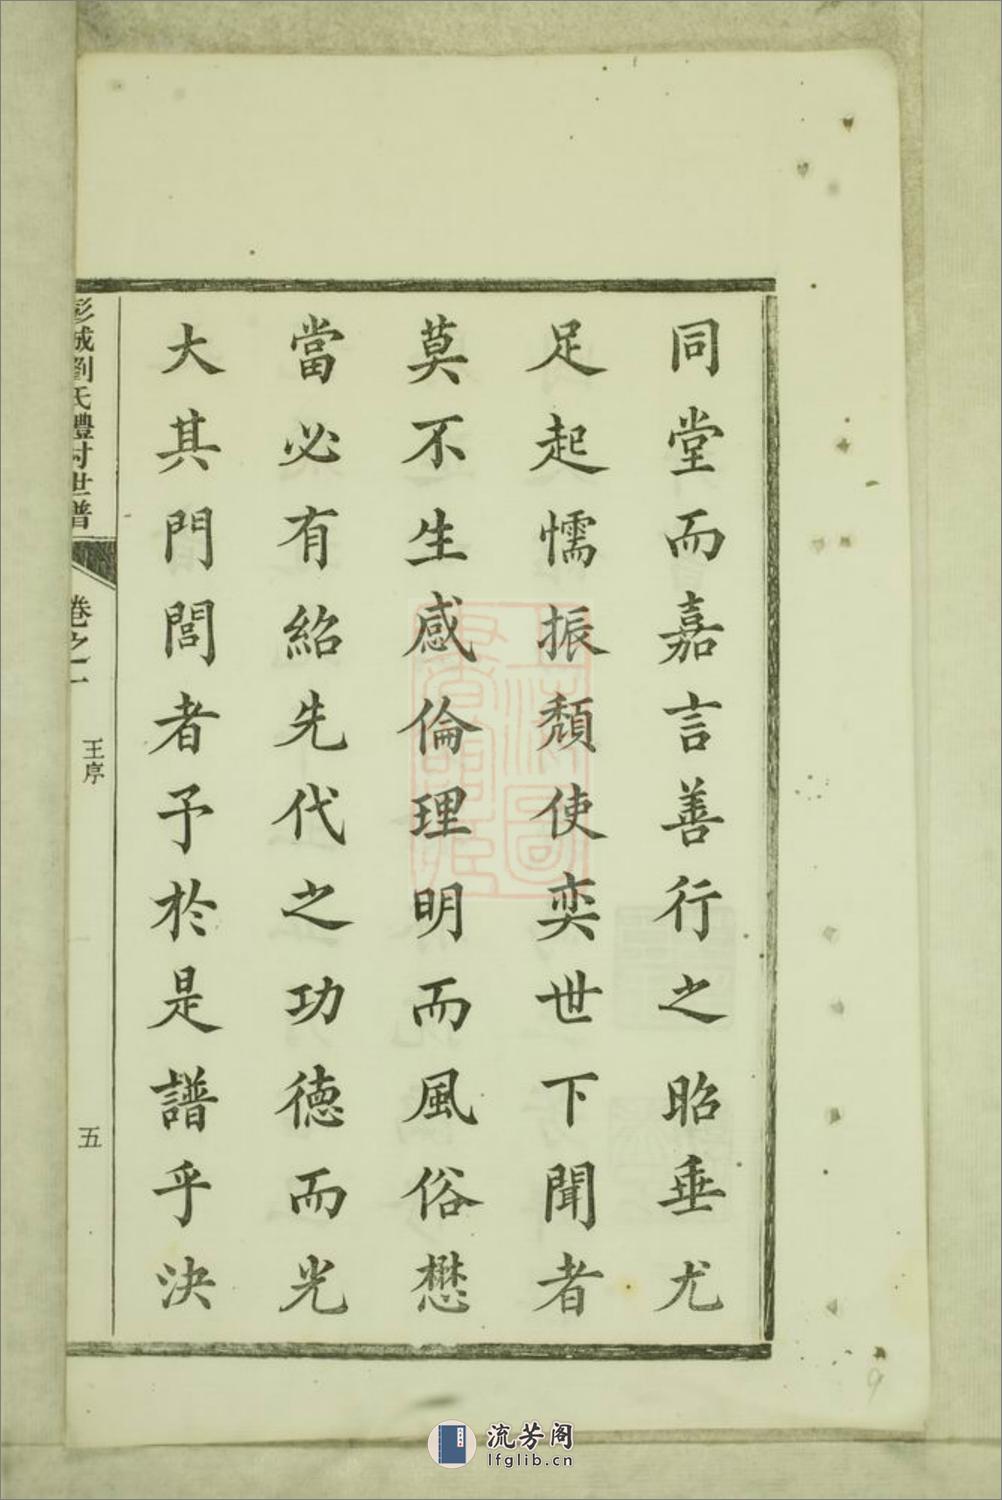 同堂而嘉言善行之昭垂尤
足起懦振頹使奕世下聞者
莫不生感倫理明而風俗懋
當必有紹先代之功德而光
大其門閭者予於是譜乎決
彭城劉氏禮村世譜
卷之一
王序
五
9
流芳阁
lfglib.cn